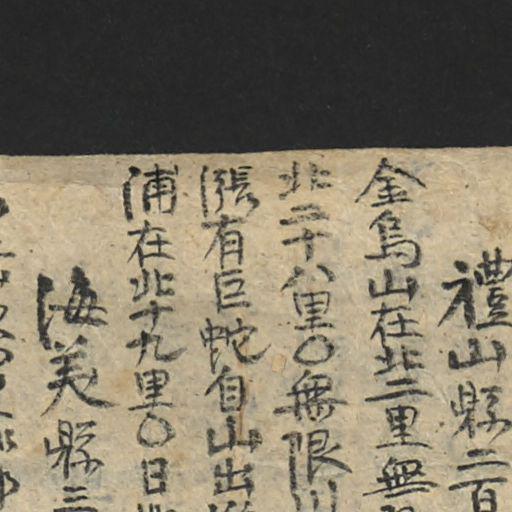 禮山縣二百
金烏山在北二里無
北二十八里○無限川
漲有巨蛇自山出
浦在北十九里○日
海美縣三